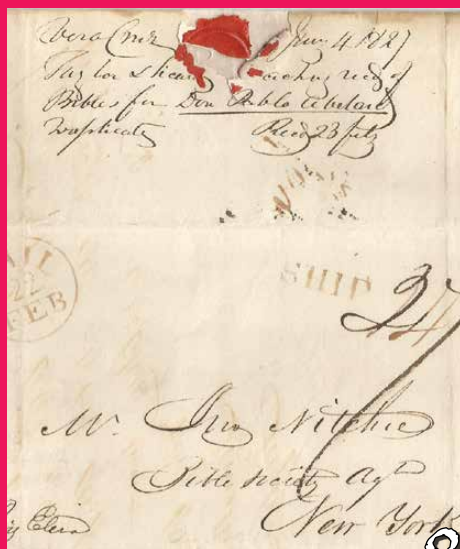 Vera Cruz Jany 4 1827
Taylor & Sicard recd of
Bibles for Don Pablo
Duplicate Recd 23 feby
SHIP
22
FEB
27
Mr. Jno Nitchie
Bible Society Agt
New York